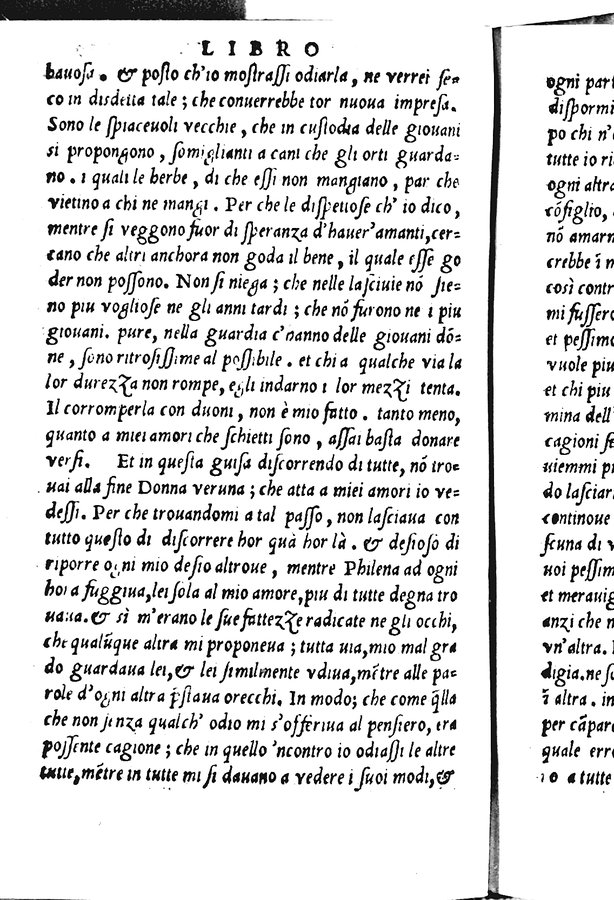 LIBRO
bauosa. & posto ch'io mostrassi odiarla, ne verrei fe=
co in disdetta tale; che conuerrebbe tor nuoua impresa.
Sono le spiaceuoli vecchie, che in custodia delle giouani
si propongono, somiglianti a cani che gli orti guarda=
no. i quali le herbe, di che essi non mangiano, par che
vietino a chi ne mangi. Per che le dispettose ch'io dico,
mentre si veggono fuor di speranza d'hauer'amanti, cer=
cano che altri anchora non goda il bene, il quale esse go
der non possono. Non si niega; che nelle lasciuie nō sie=
no piu vogliose ne gli anni tardi; che nō furono ne i piu
giouani. pure, nella guardia c'hanno delle giouani dō=
ne, sono ritrosissime al possibile. et chi a qualche via la
lor durezza non rompe, egli indarno i lor mezzi tenta.
Il corromperla con duoni, non è mio fatto. tanto meno,
quanto a miei amori che schietti sono, assai basta donare
versi. Et in questa guisa discorrendo di tutte, nō tro=
uai alla fine Donna veruna; che atta a miei amori io ve=
dessi. Per che trouandomi a tal passo, non lasciaua con
tutto questo di discorrere hor quà hor là. & desioso di
riporre ogni mio desio altroue, mentre Philena ad ogni
hora fuggiua, lei sola al mio amore, piu di tutte degna tro
uaua. & sì m'erano le sue fattezze radicate ne gli occhi,
che qualūque altra mi proponeua; tutta uia, mio mal gra
do guardaua lei, & lei similmente vdiua, mētre alle pa=
role d'ogni altra p̄staua orecchi. In modo; che come q̄lla
che non senza qualch' odio mi s'offeriua al pensiero, era
possente cagione; che in quello 'ncontro io odiassi le altre
tutte, mētre in tutte mi si dauano a vedere i suoi modi, &
ogni part
dispormi
po chi n'
tutte io ri
ogni altra
cōsiglio,
nō amarn
crebbe ī m
così contr
mi fussero
et pessimo
vuole piu
et chi piu
mina dell'
cagioni se
uiemmi p
do lasciar
continoue
scuna di v
uoi pessim
et merauig
anzi che n
vn'altra.
digia. ne so
ī altra. in
per cāpar
quale erro
io a tutte